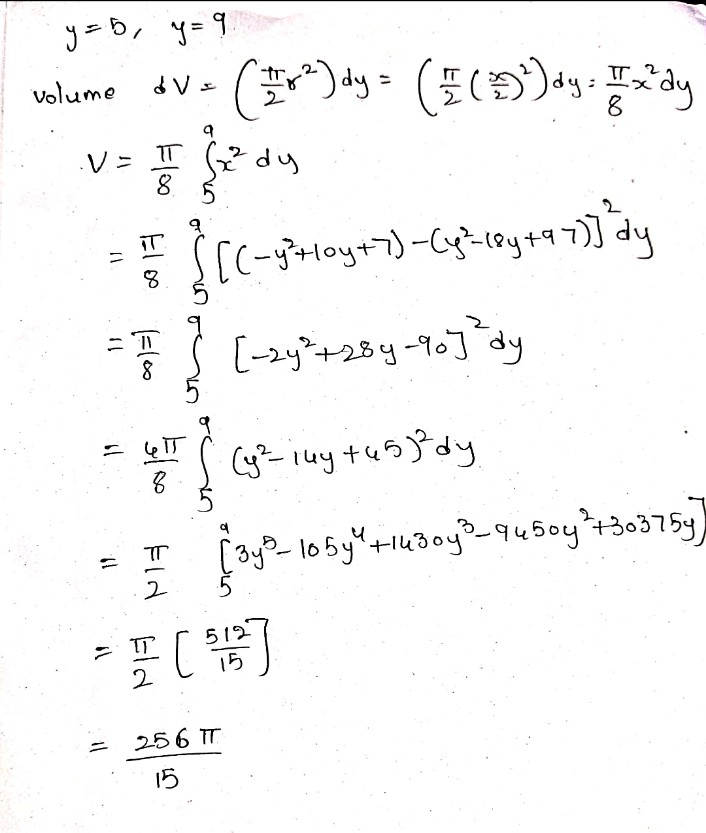 y=5, y=9
volume dV = (π/2 r²) dy = (π/2 (x/2)²) dy = π/8 x² dy
V = π/8 ∫₅⁹ x² dy
= π/8 ∫₅⁹ [(-y²+10y+7)-(y²-18y+97)]² dy
= π/8 ∫₅⁹ [-2y²+28y-90]² dy
= 4π/8 ∫₅⁹ (y²-14y+45)² dy
= π/2 ₅⁹[3y⁵-105y⁴+1430y³-9450y²+30375y]
= π/2 [512/15]
= 256π/15